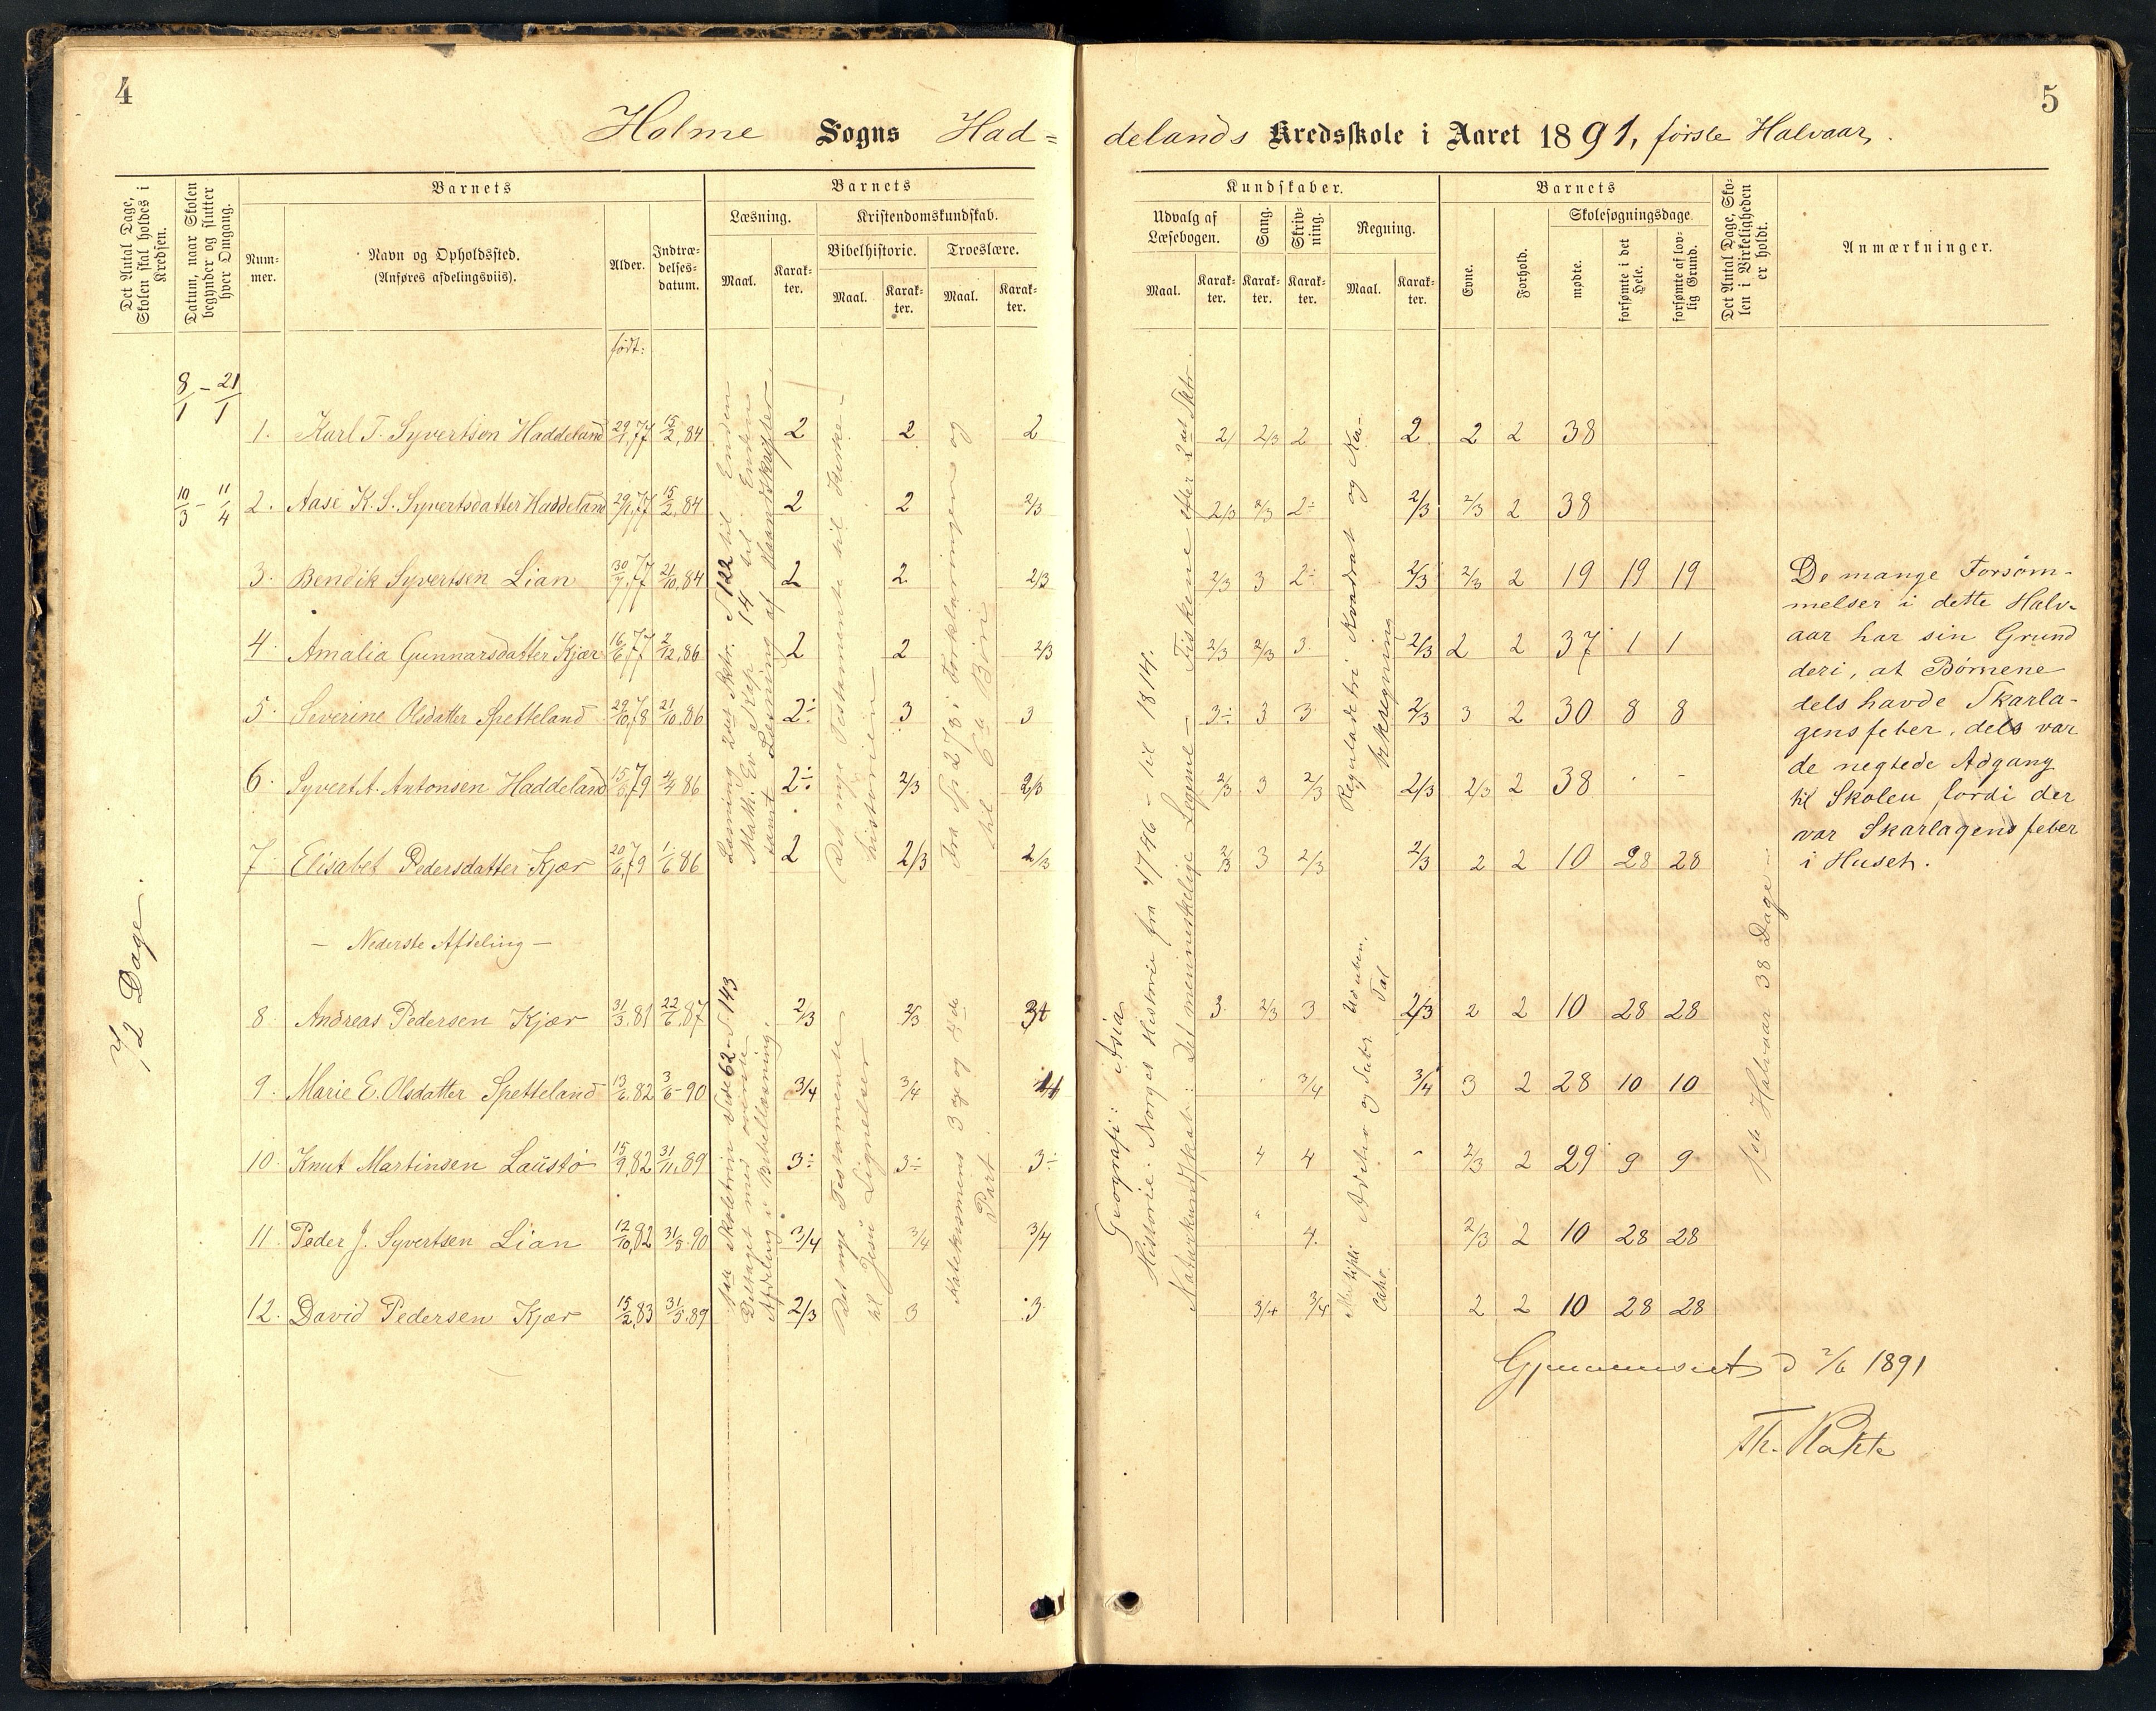 4
Holme Sogns Had=
Det Antal Dage, Skolen skal holdes i Kredsen.
Datum, naar Skolen begynder og slutter hver Omgang.
Barnets
Num-mer.
Navn og Opholdssted.
(Anføres afdelingsviis).
Alder.
Indtræ-delses-datum.
Barnets
Læsning.
Kristendomskundskab.
Bibelhistorie.
Troeslære.
Maal.
Karak-ter.
Maal.
Karak-ter.
Maal.
Karak-ter.
født:
72 Dage.
8/1 – 21/1
10/3 – 11/4
1. Karl T. Syvertsen Haddeland 29/1 77 15/2 84 2 2 2
2. Aase K. S. Syvertsdatter Haddeland 29/1 77 15/2 84 2 2 2/3
3. Bendik Syvertsen Lian 30/7 77 21/10 84 2 2 2/3
4. Amalia Gunnarsdatter Kjær 16/6 77 2/12 86 2 2 2/3
5. Severine Olsdatter Spetteland 29/10 78 21/10 86 2÷ 3 3
6. Syvert A. Antonsen Haddeland 15/6 79 2/4 86 2÷ 2/3 2/3
7. Elisabet Pedersdatter Kjær 20/6 79 1/6 86 2 2/3 2/3
– Nederste Afdeling –
8. Andreas Pedersen Kjær 31/3 81 22/6 87 2/3 2/3 3+
9. Marie E. Olsdatter Spetteland 13/6 82 3/6 – 90 3/4 3/4 4
10. Knut Martinsen Laustø 15/9 82 31/11 89 3÷ 3÷ 3÷
11. Peder J. Syvertsen Lian 12/10 82 31/5 90 3/4 3/4 3/4
12. David Pedersen Kjær 15/2 83 31/5 89 2/3 3 3
Læsning 2det Sktr. S 122 til Enden
Math. Ev. Kap. 14 til Enden
samt Læsning af Haandskrifter.
Det nye Testamente til Kirke-
historien
Fra Sp. 278 i Forklaringen og
til 6te Bøn
1ste Skoletrin Side 62 – S. 143
Deltaget med øverste
Afdeling i Bibellæsning.
Det nye Testamente
til Jesu Lignelser
Katekismens 3die og 4de
Part.
5
delands Kredsskole i Aaret 1891, første Halvaar.
Kundskaber.
Udvalg af Læsebogen.
Sang.
Skriv-ning.
Regning.
Maal.
Karak-ter.
Karak-ter.
Karak-ter.
Maal.
Karak-ter.
Barnets
Evne.
Forhold.
Skolesøgningsdage.
mødte.
forsømte i det Hele.
forsømte af lov-lig Grund.
Det Antal Dage, Sko-len i Virkeligheden er holdt.
Anmærkninger.
Geografi: Asia
Historie: Norges Historie fra 1746 – til 1814.
Naturkundskab: Det menneskelige Legeme – Fiskene efter 2det Sktr.
Reguladetri Kvadrat og Ku-
bikregning
Multipli
Adder og Subtr. Uduben. Tal
2 2/3 2 2 2 2 38
2/3 2/3 2÷ 2/3 2/3 2 38
2/3 3 2÷ 2/3 2/3 2 19 19 19
2/3 2/3 3 2/3 2 2 37 1 1
3÷ 3 3 2/3 3 2 30 8 8
2/3 3 2/3 2/3 2/3 2 38 - -
2/3 3 2/3 2/3 2 2 10 28 28
3 2/3 3 2/3 2 2 10 28 28
3/4 3/4 3 2 28 10 10
4 4 - 2/3 2 29 9 9
4. 2/3 2 10 28 28
3/4 3/4 2 2 10 28 28
1ste Halvaar 38 Dage –
De mange Forsøm-
melser i dette Halv-
aar har sin Grund
deri, at Børnene
dels havde Skarla-
gensfeber, dels var
de negtede Adgang
til Skolen fordi der
var Skarlagensfeber
i Huset.
Gjennemseet d 2/6 1891